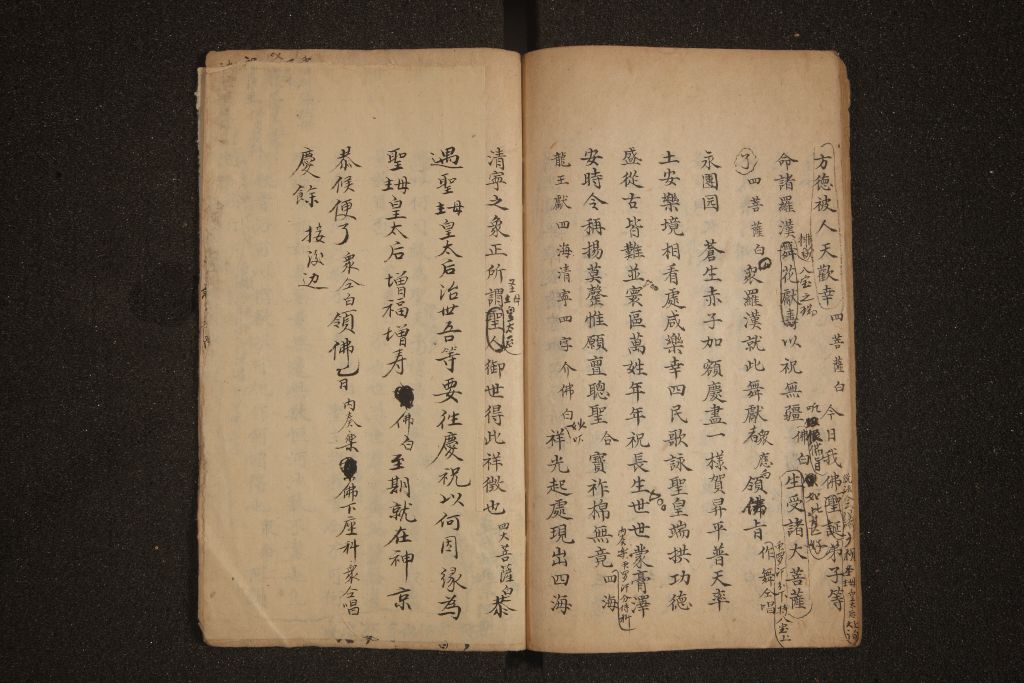 方德被人天歡幸四菩薩白今日我佛聖誕弟子等
命諸羅漢舞花獻壽以祝無疆佛白生受諸大菩薩
了四菩薩白眾羅漢就此舞獻者眾應于領佛旨作舞仝唱
永團园 蒼生赤子如額慶盡一樣賀昇平普天率
土安樂境相看處咸樂幸四民歌詠聖皇端拱功德
盛從古皆難並寰區萬姓年年祝長生世世蒙膏澤
安時令稱揚莫罄惟願亶聰聖 合 寶祚棉無竟 四海
龍王獻四海清寧四字介佛白 祥光起處現出四海
清寧之象正所謂聖人御世得此祥徵也四大菩薩白恭
聖母皇太后
遇聖母皇太后治世吾等要往慶祝以何因緣為
聖母皇太后增福增寿 佛白 至期就在神京
恭候便了 眾仝白領佛旨 內奏樂 佛下座科眾仝唱
慶餘 接後边